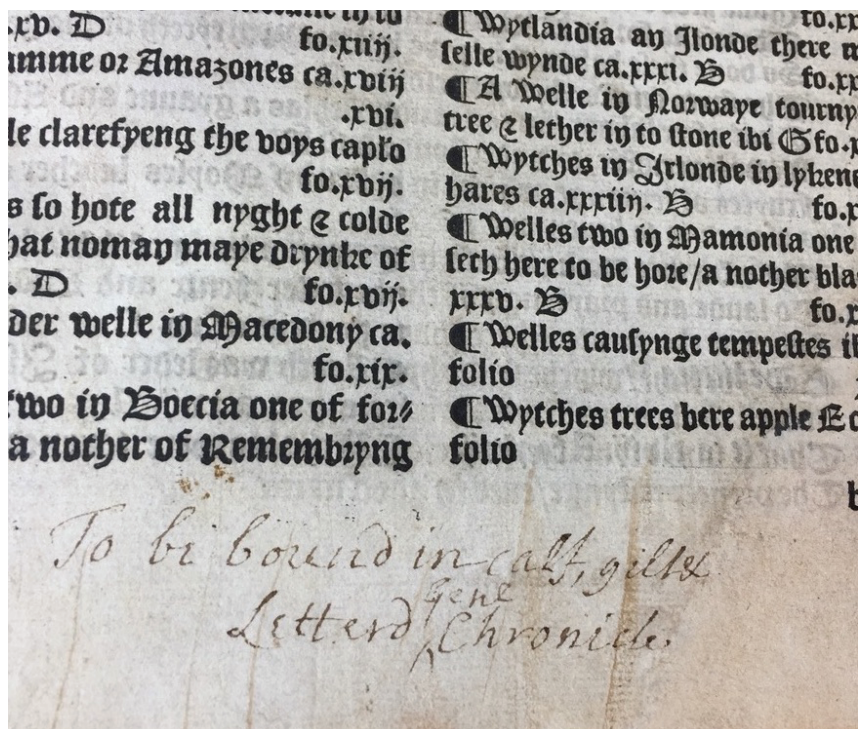 .xv. D
fo.xiiij.
amme or Amazones ca.xviij
.xvi.
le clarefyeng the voys caplo
fo.xvij.
s so hote all nyght & colde
hat noman maye drynke of
. D fo.xvij.
der welle in Macedony ca.
fo.xix.
two in Boecia one of for⸗
a nother of Remembryng
fo.xx
¶ Wytlandia an Ilonde there m
selle wynde ca.xxxi. B fo.xx
¶ A Welle in Norwaye tourny
tree & lether in to stone ibi G fo.x
¶ Wytches in Irlonde in lykene
hares ca.xxxiiij. B fo.x
¶ Welles two in Mamonia one
seth here to be hore/a nother bla
xxxv. B fo.x
¶ Welles causynge tempestes
folio
¶ Wytches trees bere apple
folio
To bi bound in calf, gilt &
Letterd Gene Chronicle.